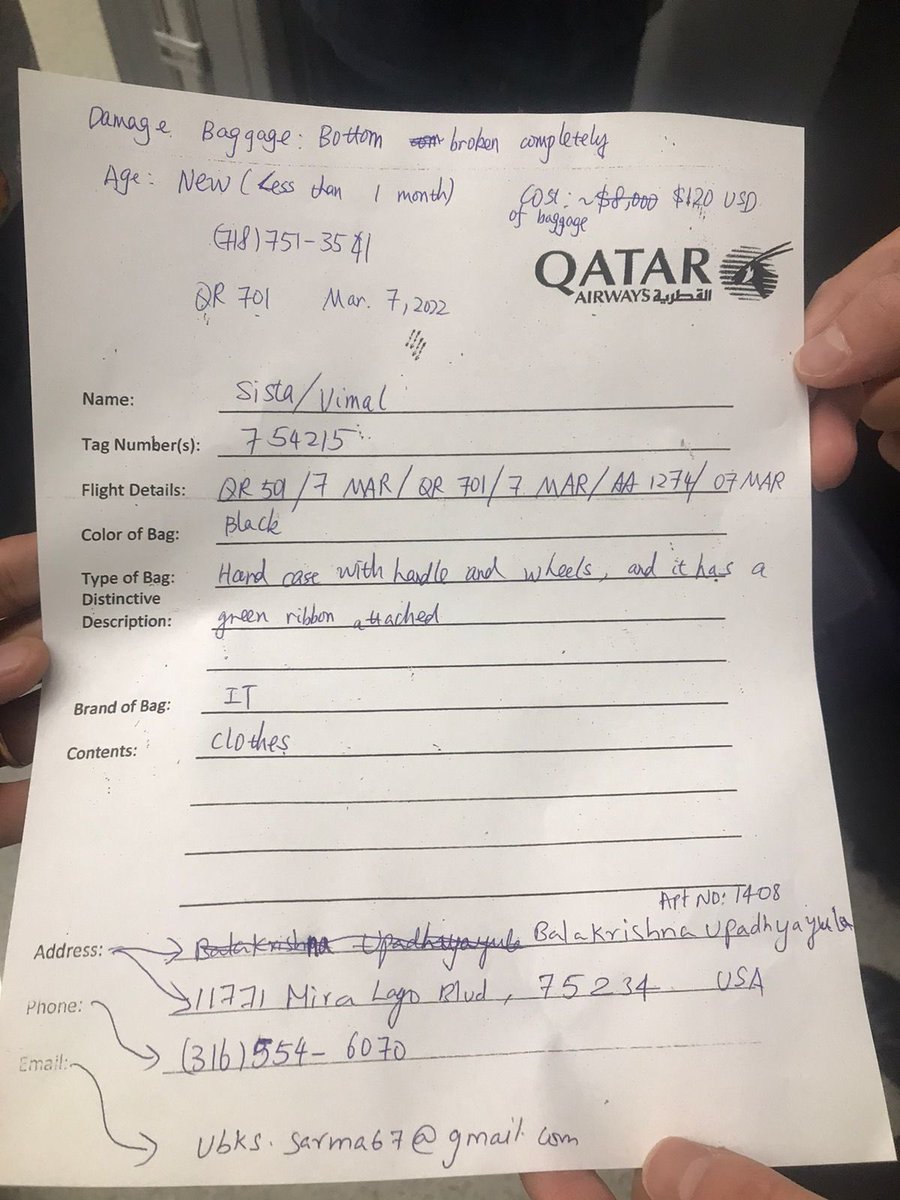 Damage Baggage: Bottom broken completely
Age: New (Less than 1 month)
Cost: ~$8,000 $120 USD
of baggage
(718)751-3541
QR 701 Mar. 7, 2022
QATAR
AIRWAYS القطرية
Name: Sista/Vimal
Tag Number(s): 754215
Flight Details: QR 59/7 MAR/QR 701/7 MAR/AA 1274/07 MAR
Color of Bag: Black
Type of Bag: Hard case with handle and wheels, and it has a
Distinctive
Description: green ribbon attached
Brand of Bag: IT
Contents: Clothes
Apt NO: 1408
Address: Balakrishna Upadhyayula Balakrishna Upadhyayula
11771 Mira Lago Blvd, 75234 USA
Phone: (316)554-6070
Email: Ubks.sarma67@gmail.com